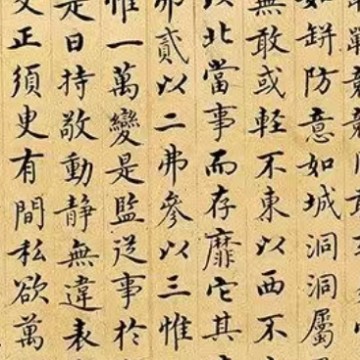 如缾防意如城洞洞屬
無敢或輕不東以西不
以北當事而存靡它其
弗貳以二弗參以三惟
惟一萬變是監從事於
是曰持敬動靜無違表
交正須臾有間私欲萬